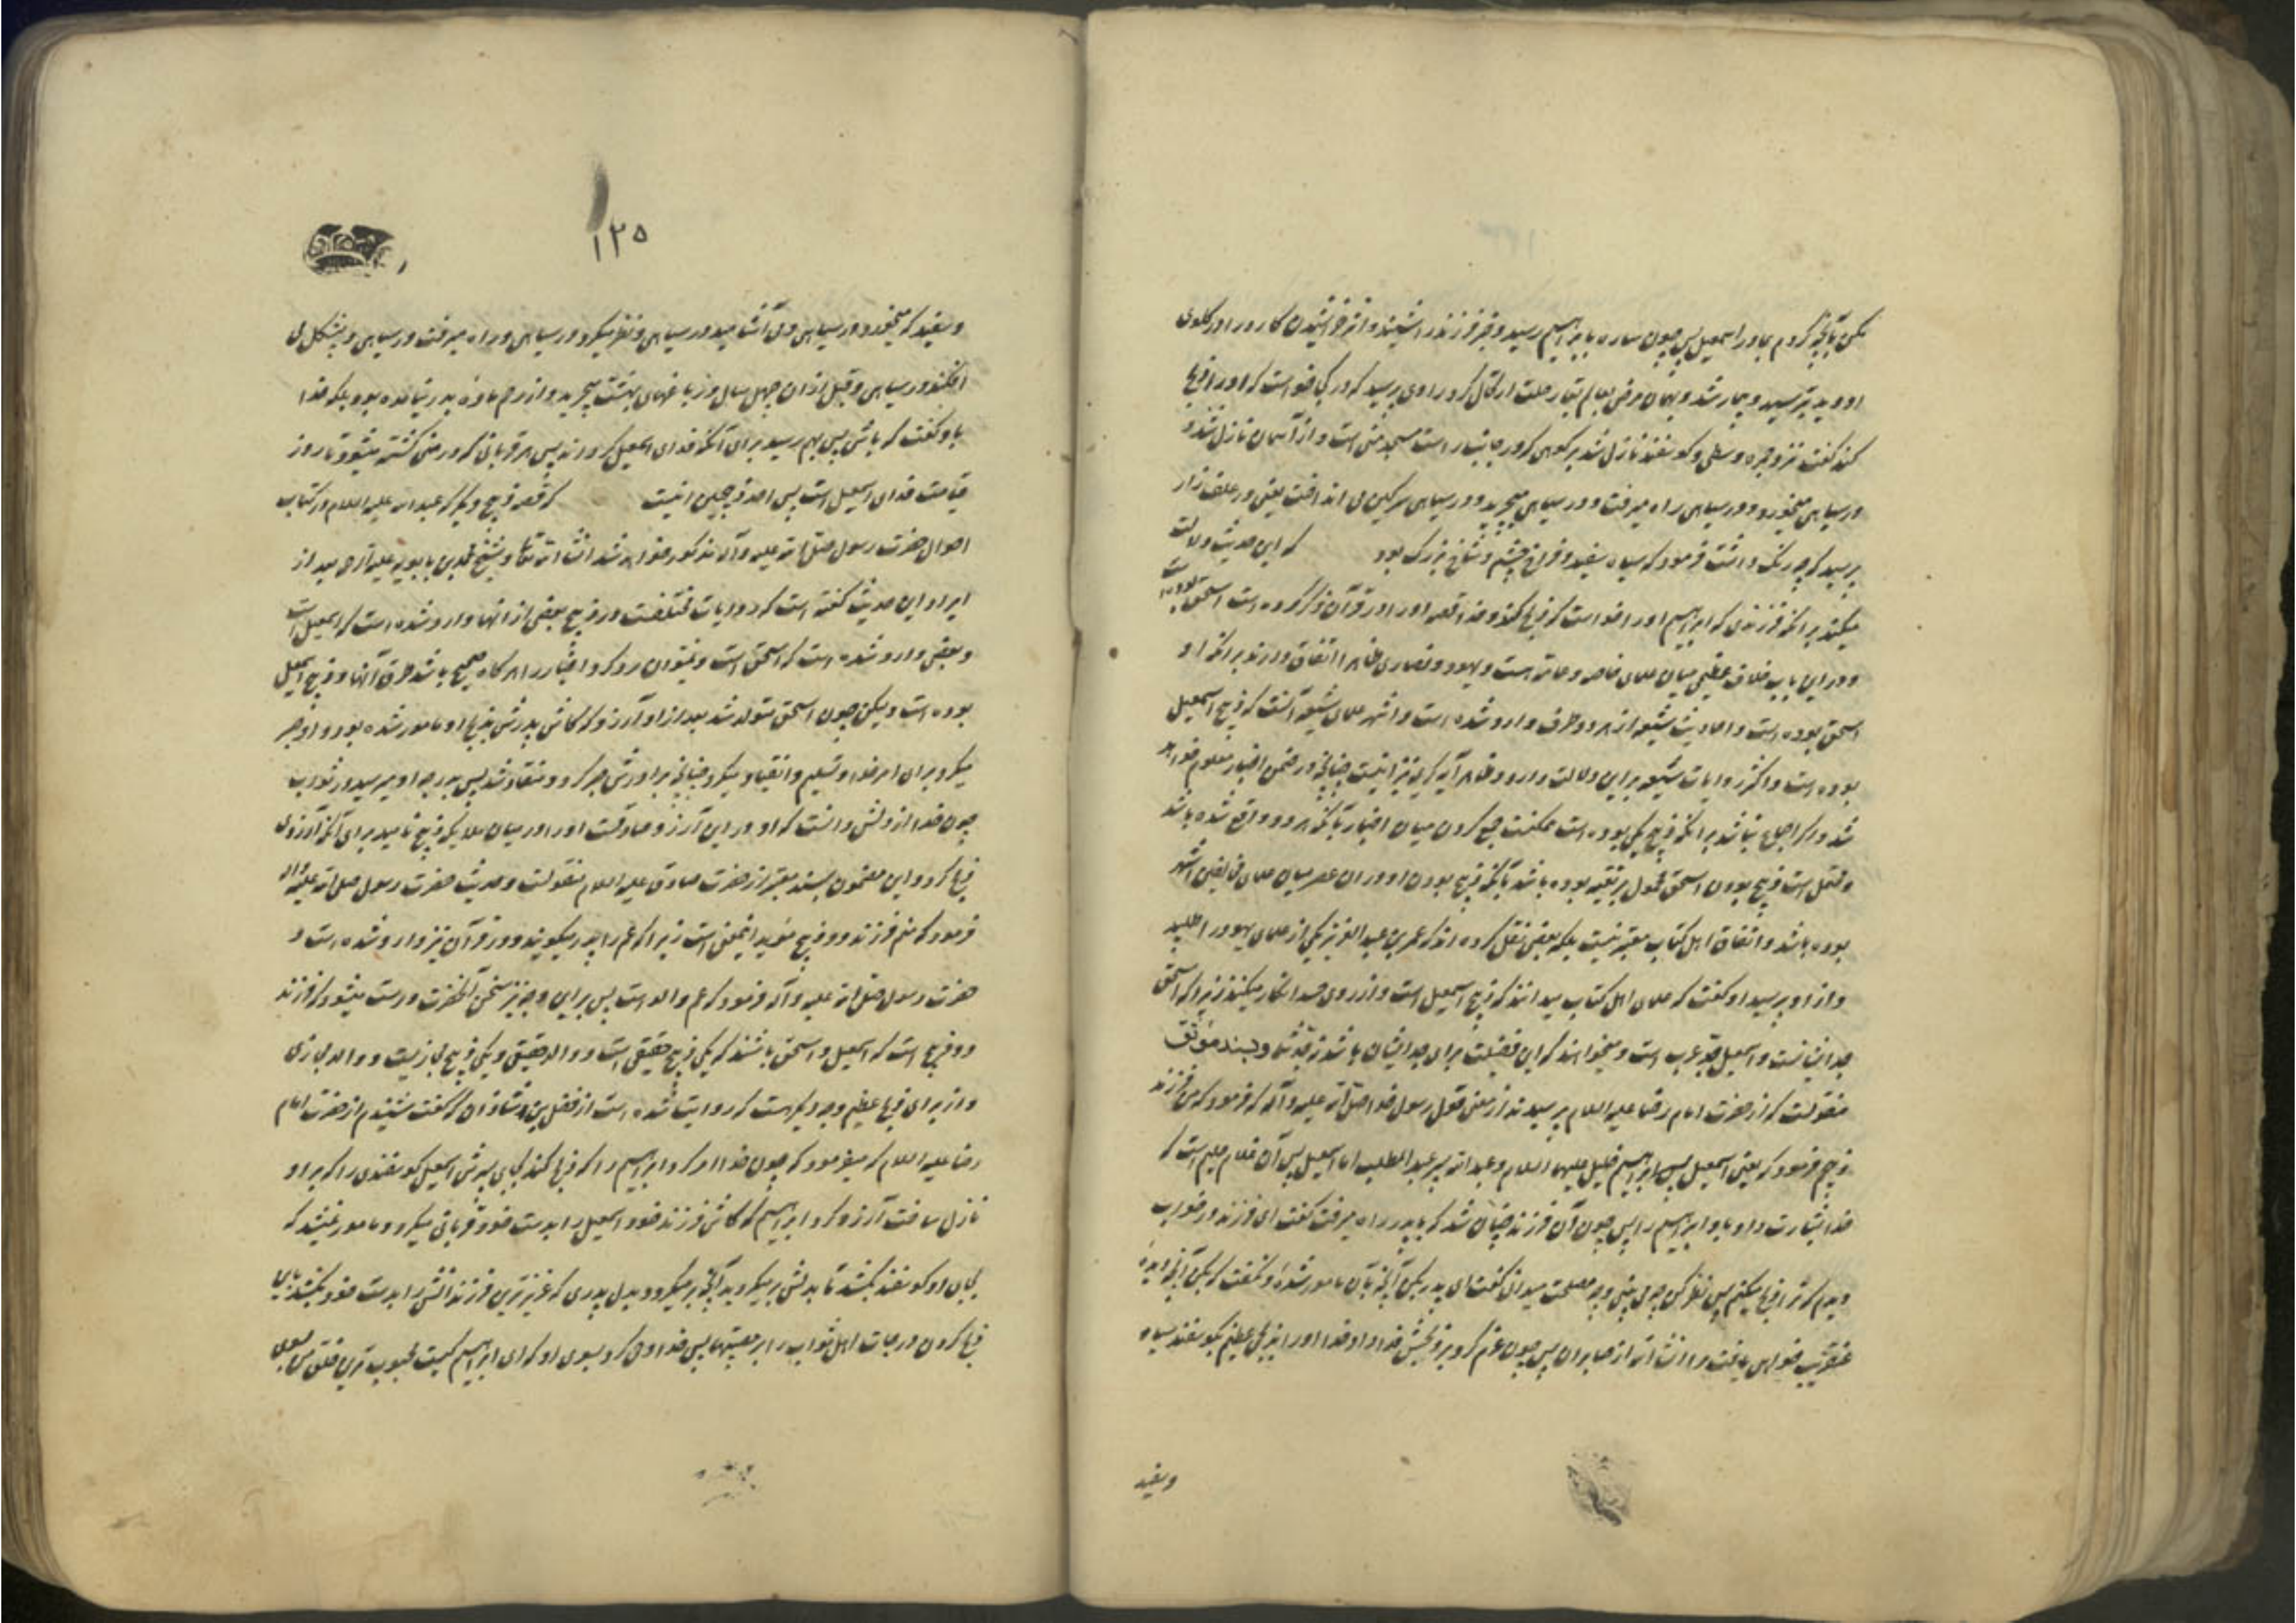 مکن بآنچه کردم بمادر اسمعیل پس چون ساره بابراهیم رسید و خبر فرزند را شنید و اثر خراشیدن کارد را در گلوی
او دید بترسید و بیمار شد و بهمان مرض بعالم بقا رحلت ارتحال کرد راوی پرسید که در کجا خواست که او را ذبح
کند گفت نزد جمره وسطی و گوسفند نازل شد بر کوهی که در جانب راست مسجد منی است و از آسمان نازل شد و
در سیاهی میخورد و در سیاهی راه میرفت و در سیاهی میچرید و در سیاهی سرگین می انداخت یعنی در علف زار
پرسید که چه رنگ داشت فرمود که سیاه و سفید و فراخ چشم و شاخ بزرگ بود که این حدیث دلالت
میکند بر آنکه فرزندی که ابراهیم او را خواست که ذبح کند و خدا قصه او را در قرآن ذکر کرده است اسحق بوده است
و در این باب خلاف عظیمی میان علمای خاصه و عامه هست و یهود و نصاری ظاهرا اتفاق دارند بر آنکه او
اسحق بوده است و احادیث شیعه از هر دو طرف وارد شده است و اشهر علمای شیعه آنست که ذبیح اسمعیل
بوده است و اکثر روایات شیعه بر این دلالت دارد و ظاهر آیه کریمه نیز اینست چنانچه در ضمن اخبار معلوم خواهد
شد و اگر اجماع نباشد بر آنکه ذبیح یکی بوده است ممکنست جمع کردن میان اخبار بآنکه هر دو واقع شده باشد
و محتمل است ذبیح بودن اسحق محمول بر تقیه بوده باشد بآنکه ذبیح بودن او در آن عصر میان علمای مخالفین اشهر
بوده باشد و اتفاق اهل کتاب معتبر نیست بلکه بعضی نقل کرده اند که عمر بن عبد العزیز یکی از علمای یهود را طلبید
و از او پرسید او گفت که علمای اهل کتاب میدانند که ذبیح اسمعیل است و از روی حسد انکار میکنند زیرا که اسحق
جد ایشانست و اسمعیل جد عرب است و میخواهند که این فضیلت برای جد ایشان باشد نه جد شما و بسند موثق
منقولست که از حضرت امام رضا علیه السلام پرسیدند از معنی قول رسول خدا صلی الله علیه و آله که فرمود که من فرزند دو
ذبیحم فرمود که یعنی اسمعیل پسر ابراهیم خلیل علیهما السلام و عبد الله پسر عبد المطلب اما اسمعیل پس آن غلام حلیم است که
خدا بشارت داد باو ابراهیم را پس چون آن فرزند چنان شد که با پدر راه میرفت گفت ای فرزند در خواب
دیدم که ترا ذبح میکنم پس نظر کن چه می بینی و چه مصلحت میدانی گفت ای پدر بکن آنچه بآن مامور شده و نگفت که بکن آنچه دیده
عنقریب خواهی یافت مرا انشاء الله از صابران پس چون عزم کرد بر ذبحش فدا داد خدا او را بذبحی عظیم بگوسفند سیاه
وسفید
۱۲۵
وسفید که میخورد در سیاهی و می آشامید در سیاهی و نظر میکرد در سیاهی و راه میرفت در سیاهی و پشکل می
افکند در سیاهی و قبل از آن چهل سال در باغهای بهشت میچرید و از رحم ماده بدر نیامده بود بلکه خدا
باو گفت که باش پس بهم رسید برای آنکه فدای اسمعیل گرداند پس هر قربانی که در منی کشته میشود تا روز
قیامت فدای اسمعیل است پس احد ذبیحین اینست که قصه ذبیح دیگر که عبد الله علیه السلام در کتاب
احوال حضرت رسول صلی الله علیه و آله مذکور خواهد شد انشاء الله تعالی و شیخ محمد بن بابویه علیه الرحمه بعد از
ایراد این حدیث گفته است که روایات مختلفست در ذبیح بعضی از آنها وارد شده است که اسمعیل است
و بعضی وارد شده است که اسحق است و نمیتوان رد کرد اخبار را هر گاه صحیح باشد طرق آنها و ذبیح اسمعیل
بوده است و لیکن چون اسحق متولد شد بعد از او آرزو کرد که کاش پدرش بذبح او مامور شده بود و او صبر
میکرد برای امر خدا و تسلیم و انقیاد میکرد چنانچه برادرش صبر کرد و منقاد شد پس بدرجه او میرسید در ثواب
چون خدا از دلش دانست که او در این آرزو صادقست او را در میان ملایکه ذبیح نامید برای آنکه آرزوی
ذبح کرد و این مضمون بسند معتبر از حضرت صادق علیه السلام منقولست و حدیث حضرت رسول صلی الله علیه وآله
فرمود که منم فرزند دو ذبیح مؤید اینمعنی است زیرا که عم را پدر میگویند و در قرآن نیز وارد شده است و
حضرت رسول صلی الله علیه و آله فرمود که عم والد است پس بر این وجه نیز سخن آنحضرت درست میشود که فرزند
دو ذبیح است که اسمعیل و اسحق باشند که یکی ذبیح حقیقی است و والد حقیقی و یکی ذبیح مجازیست و والد مجازی
و از برای ذبح عظیم وجه دیگر هست که روایت شده است از فضل بن شاذان که گفت شنیدم از حضرت امام
رضا علیه السلام که میفرمود که چون خدا امر کرد ابراهیم را که ذبح کند بجای پسرش اسمعیل گوسفندی را که بر او
نازل ساخت آرزو کرد ابراهیم که کاش فرزند خود اسمعیل را بدست خود قربانی میکرد و مامور نمیشد که
بجای او گوسفند بکشد تا بدلش بر میگردید آنچه بر میگردد بدل پدری که عزیزترین فرزندانش را بدست خود بکشد باین
ذبح کردن درجات اهل ثواب را بر مصیبتها پس خدا وحی کرد بسوی او که ای ابراهیم کیست محبوب ترین خلق من بسوی